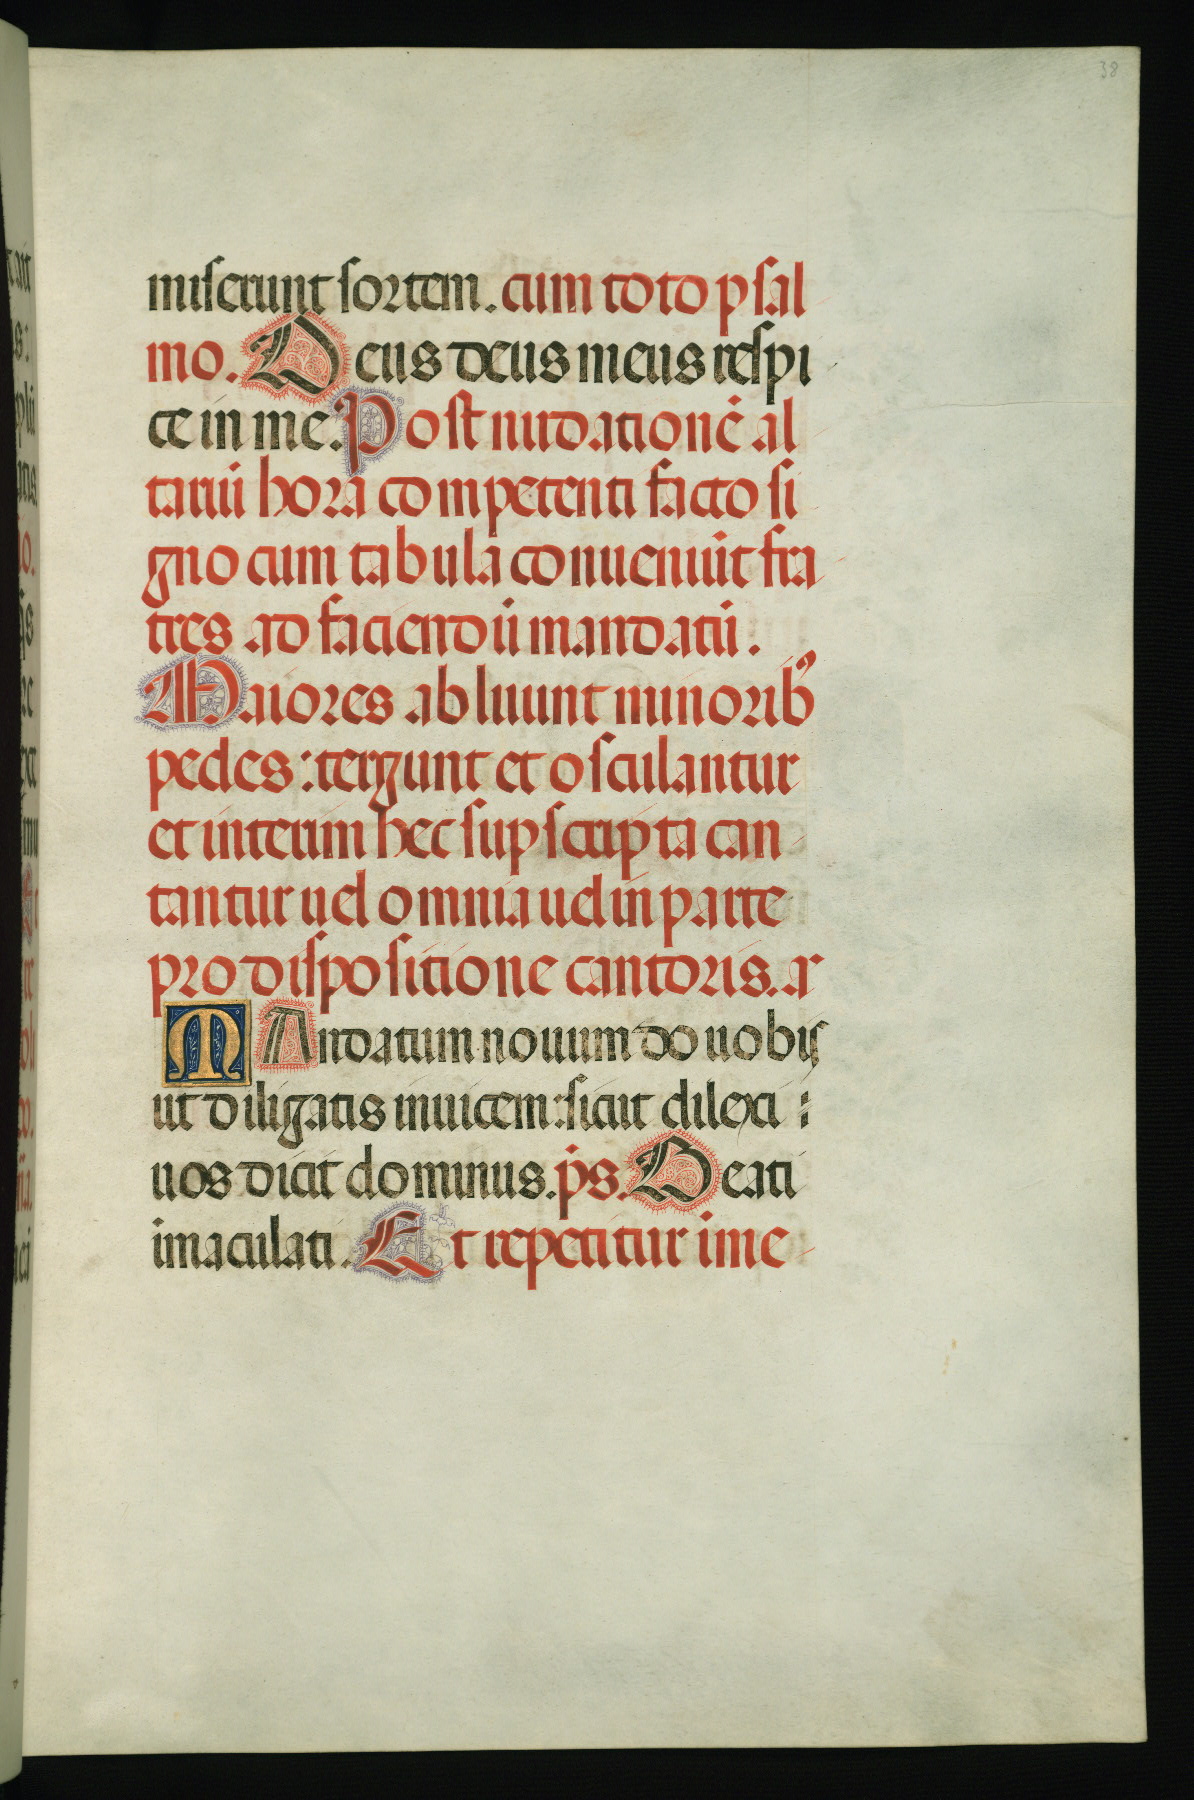 38
miserunt sortem. cum toto psal
mo. Deus deus meus respi
ce in me. Post nudationē al
tariū hora competenti facto si
gno cum tabula conueniūt fra
tres ad faciendū mandatū.
Maiores abluunt minorib9
pedes: tergunt et osculantur
et interim hec sup scripta can
tantur uel omnia uel in parte
pro dispositione cantoris. a
MAndatum nouum do uobis
ut diligatis inuicem: sicut dilexi
uos dicit dominus. ps. Beati
imaculati. Et repetitur ime